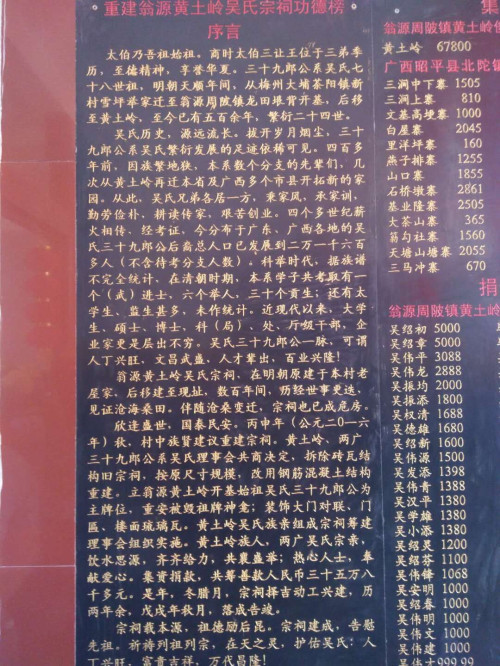 重建翁源黄土岭吴氏宗祠功德榜
序言
太伯乃吾祖始祖。商时太伯三让王位于三弟季
历，至德精神，享誉华夏。三十九郎公系吴氏七
十八世祖，明朝天顺年间，从梅州大埔茶阳镇新
村雪坪举家迁至翁源周陂镇龙田埌背开基，后移
至黄土岭，至今已有五百余年，繁衍二十四世。
吴氏历史，源远流长。拔开岁月烟尘，三十
九郎公系吴氏繁衍发展的足迹依稀可见。四百多
年前，因族繁地狭，本系数个分支的先辈们，几
次从黄土岭再迁本省及广西多个市县开拓新的家
园。从此，吴氏兄弟各居一方，秉家风，承家训，
勤劳俭朴，耕读传家，艰苦创业。四个多世纪薪
火相传，经考证，今分布于广东、广西各地的吴
氏三十九郎公后裔总人口已发展到二万一千六百
多人（不含待考分支人数）。科举时代，据族谱
不完全统计，在清朝时期，本系学子共考取有一
个（武）进士，六个举人，三十个贡生；还有太
学生、监生甚多，未作统计。近现代以来，大学
生、硕士、博士，科（局）、处、厅级干部，企
业家更是层出不穷。吴氏三十九郎公一脉，可谓
人丁兴旺，文昌武盛，人才辈出，百业兴隆！
翁源黄土岭吴氏宗祠，在明朝原建于本村老
屋家，后移建至现址，数百年间，历经世事更迭，
见证沧海桑田。伴随沧桑变迁，宗祠也已成危房。
欣逢盛世，国泰民安。丙申年（公元二0一六
年）秋，村中族贤建议重建宗祠。黄土岭、两广
三十九郎公系吴氏理事会共商决定，拆除砖瓦结
构旧宗祠，按原尺寸规模，改用钢筋混凝土结构
重建。立翁源黄土岭开基始祖吴氏三十九郎公为
主牌位，重安被毁祖牌神龛；装饰大门对联、门
匾、楼面琉璃瓦。黄土岭吴氏族亲组成宗祠筹建
理事会组织实施。黄土岭族人，两广吴氏宗亲，
饮水思源，齐齐给力，共襄盛举；热心人士，奉
献爱心。集资捐款，共筹善款人民币三十五万八
千多元。是年，冬腊月，宗祠择吉动工兴建，历
两年余，戊戌年秋月，落成告竣。
宗祠载本源，祖德励后昆。宗祠建成，告慰
先祖。祈祷列祖列宗，在天之灵，护佑吴氏：人
丁兴旺，富贵吉祥，万代昌隆！
集
翁源周陂镇黄土岭
黄土岭 67800
广西昭平县北陀镇
三洞中下寨 1505
三洞上寨 810
文基高埂寨 1000
白屋寨 2045
里洋坪寨 160
燕子排寨 1255
山口寨 1855
石桥墩寨 2861
基业隆寨 2505
大茶山寨 365
翁勾社寨 1560
天塘山塘寨 2055
三马冲寨 670
捐
翁源周陂镇黄土岭
吴绍初 5000
吴绍章 5000
吴伟平 3088
吴伟龙 2888
吴振均 2000
吴振添 1800
吴权清 1688
吴德雄 1680
吴绍新 1600
吴伟源 1500
吴发添 1398
吴伟青 1388
吴汉平 1380
吴学雄 1380
吴小添 1380
吴绍灵 1200
吴绍芬 1100
吴伟锋 1068
吴安明 1000
吴绍春 1000
吴伟明 1000
吴伟文 1000
吴伟建 1000